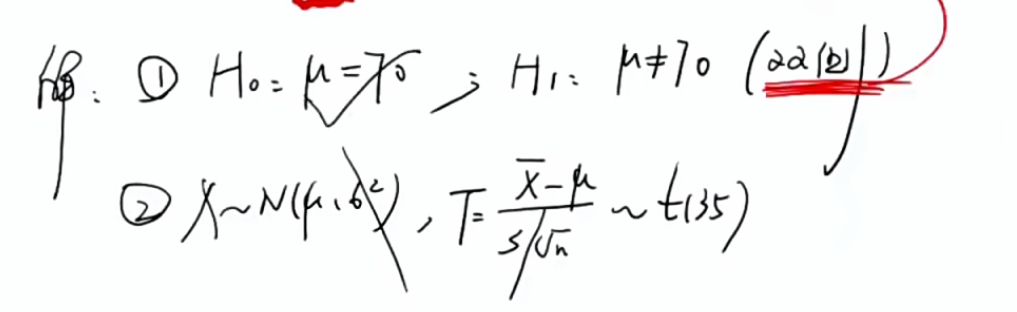 解: ① H₀: μ=70 ; H₁: μ≠70 (双侧)
② X~N(μ,σ²), T= (X̄-μ)/(S/√n) ~ t(35)